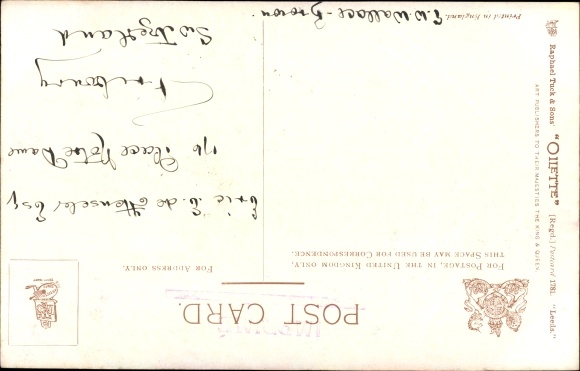 POST CARD.
FOR POSTAGE, IN THE UNITED KINGDOM ONLY,
THIS SPACE MAY BE USED FOR CORRESPONDENCE.
FOR ADDRESS ONLY.
Eric E. de Henseler Esq
176 Place Notre Dame
Fribourg
Switzerland
E.W. Wallace-Brown.
Raphael Tuck & Sons' "OILETTE" [Regd.] Postcard 1781. "Leeds."
ART PUBLISHERS TO THEIR MAJESTIES THE KING & QUEEN.
Printed in England.